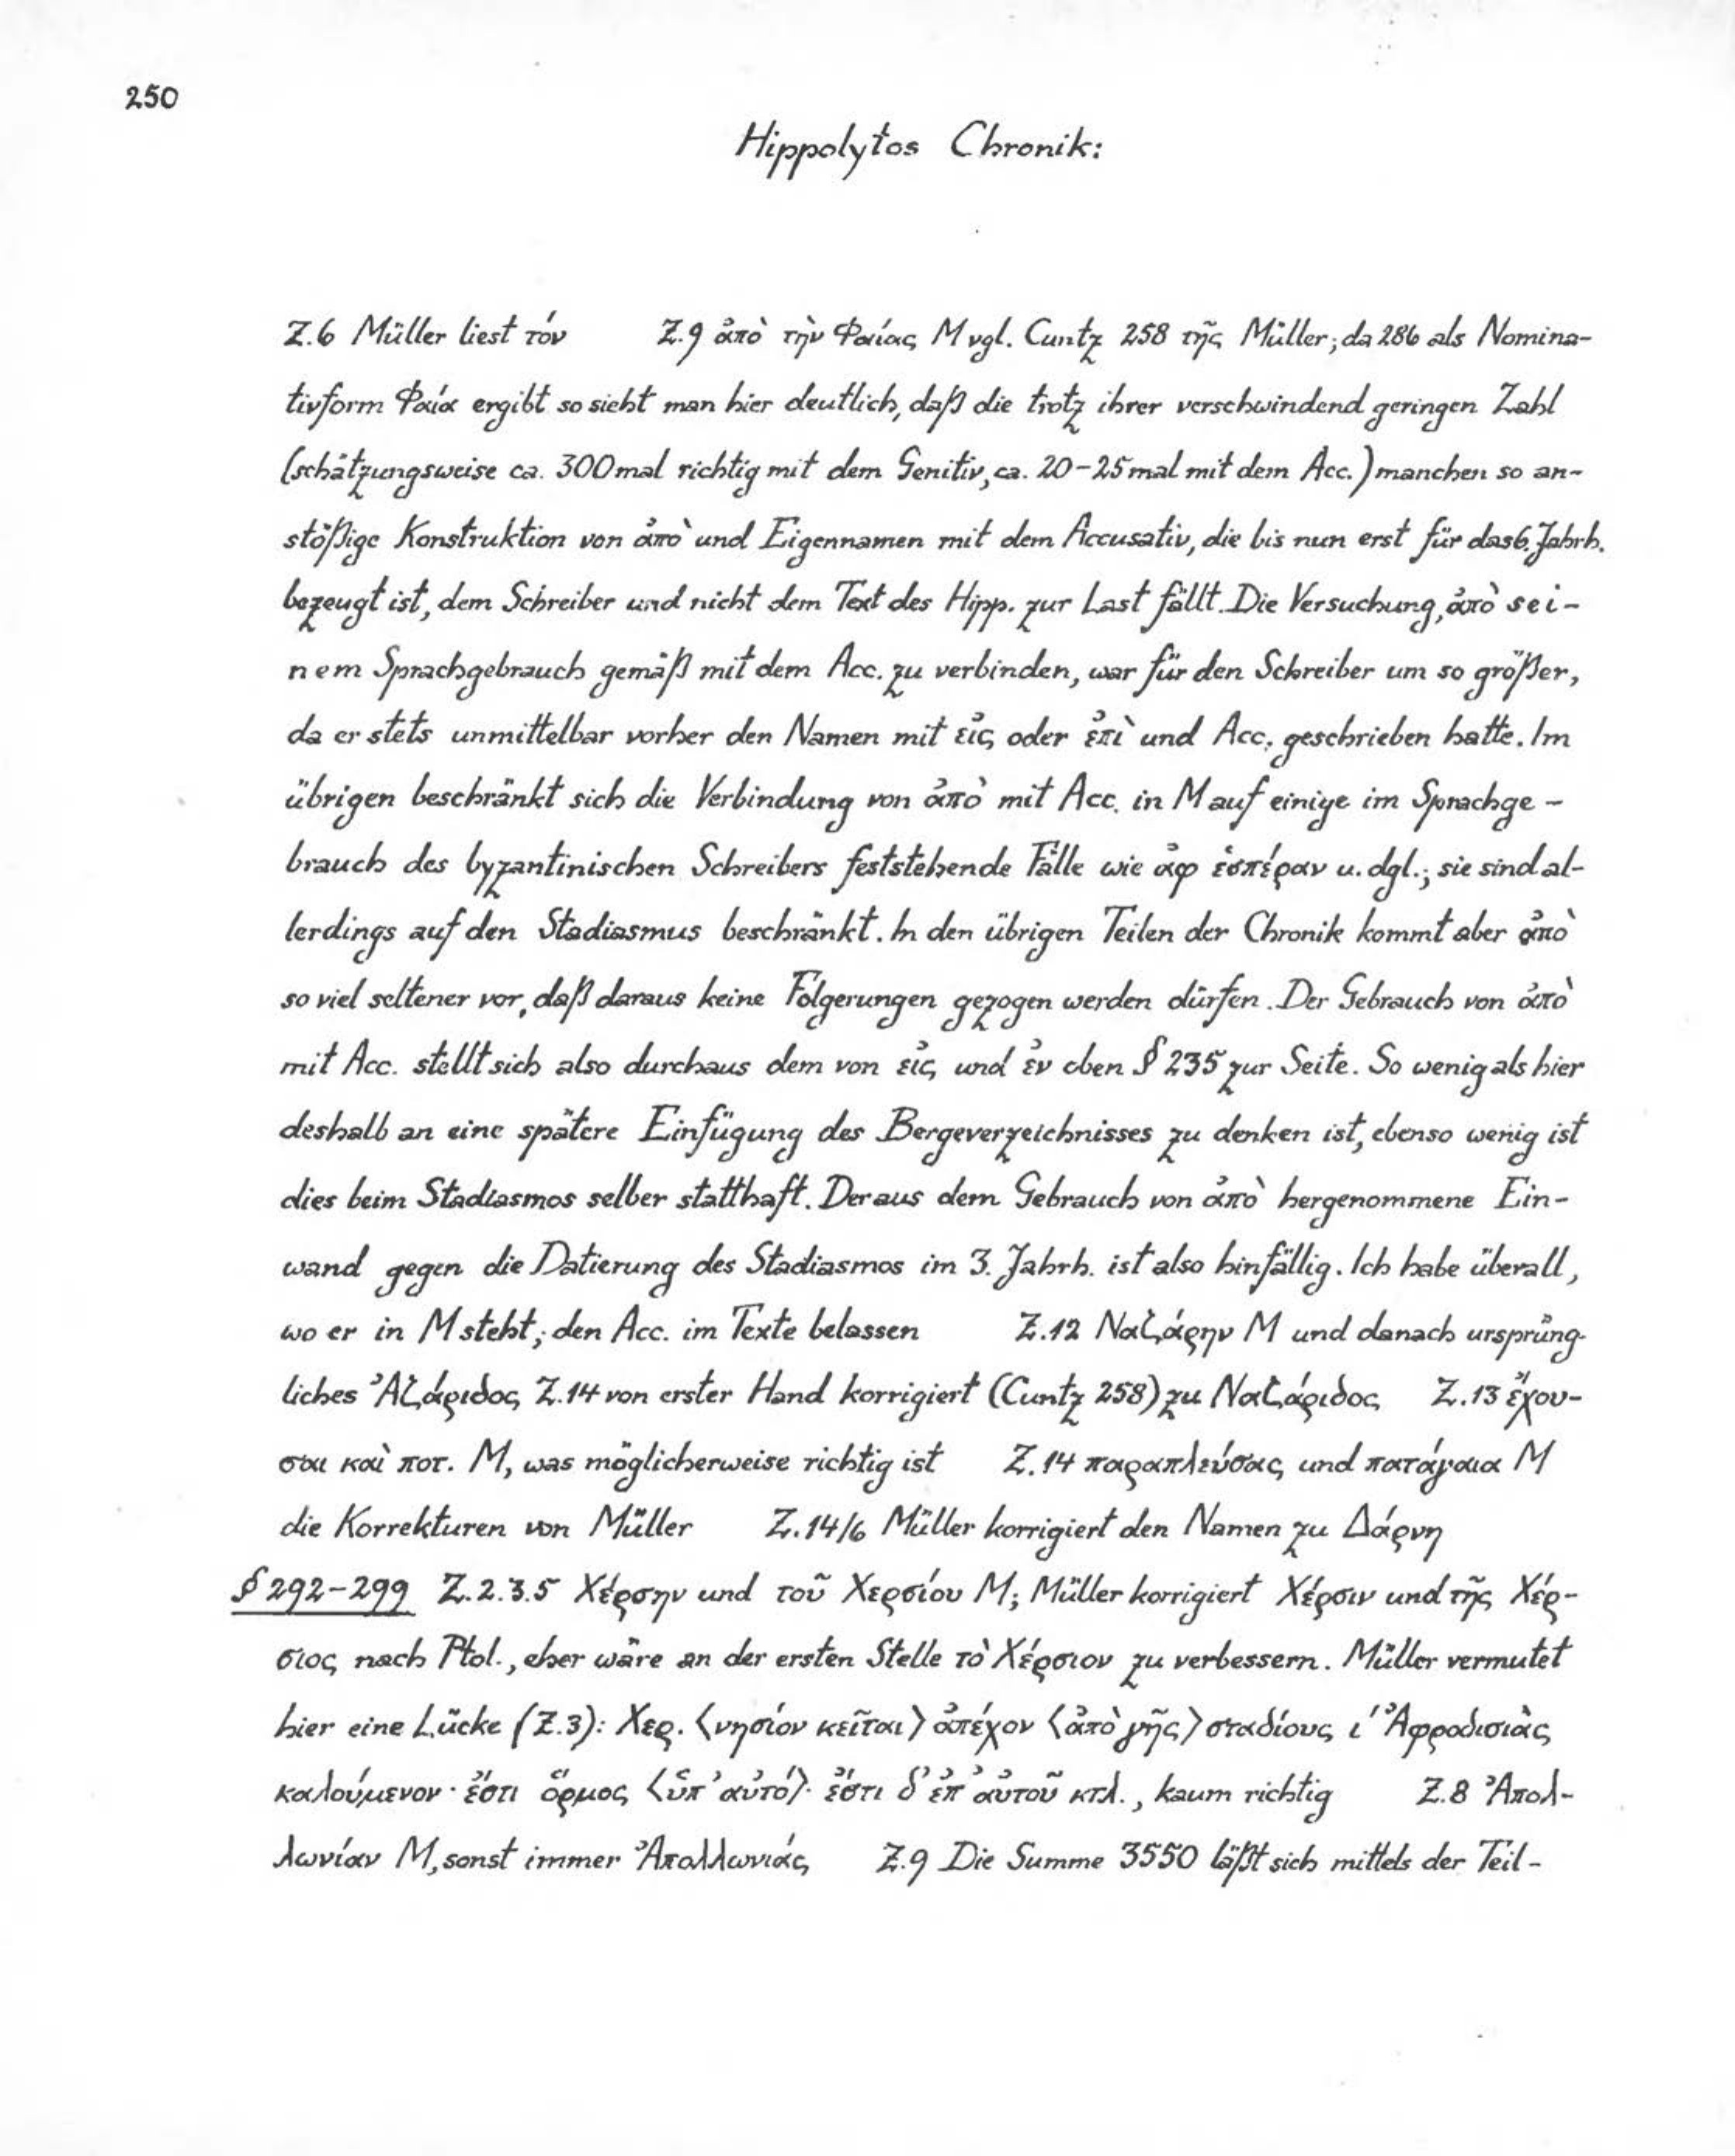 250
Hippolytos Chronik:
Z.6 Müller liest τόν Z.9 ἀπὸ τὴν Φαίας M vgl. Cuntz 258 τῆς Müller; da 286 als Nomina-
tivform Φαία ergibt so sieht man hier deutlich, daß die trotz ihrer verschwindend geringen Zahl
(schätzungsweise ca. 300mal richtig mit dem Genitiv, ca. 20-25mal mit dem Acc.) manchen so an-
stößige Konstruktion von ἀπὸ und Eigennamen mit dem Accusativ, die bis nun erst für das 6. Jahrh.
bezeugt ist, dem Schreiber und nicht dem Text des Hipp. zur Last fällt. Die Versuchung, ἀπὸ sei-
nem Sprachgebrauch gemäß mit dem Acc. zu verbinden, war für den Schreiber um so größer,
da er stets unmittelbar vorher den Namen mit εἰς oder ἐπὶ und Acc. geschrieben hatte. Im
übrigen beschränkt sich die Verbindung von ἀπὸ mit Acc. in M auf einige im Sprachge-
brauch des byzantinischen Schreibers feststehende Fälle wie ἀφ ἑσπέραν u. dgl.; sie sind al-
lerdings auf den Stadiasmus beschränkt. In den übrigen Teilen der Chronik kommt aber ἀπὸ
so viel seltener vor, daß daraus keine Folgerungen gezogen werden dürfen. Der Gebrauch von ἀπὸ
mit Acc. stellt sich also durchaus dem von εἰς und ἐν oben § 235 zur Seite. So wenig als hier
deshalb an eine spätere Einfügung des Bergeverzeichnisses zu denken ist, ebenso wenig ist
dies beim Stadiasmos selber statthaft. Der aus dem Gebrauch von ἀπὸ hergenommene Ein-
wand gegen die Datierung des Stadiasmos im 3. Jahrh. ist also hinfällig. Ich habe überall,
wo er in M steht, den Acc. im Texte belassen Z.12 Ναζάρην M und danach ursprüng-
liches Ἀζάριδος Z.14 von erster Hand korrigiert (Cuntz 258) zu Ναζάριδος Z.13 ἔχου-
σαι καὶ ποτ. M, was möglicherweise richtig ist Z.14 παραπλεύσας und πατάγαια M
die Korrekturen von Müller Z.14/6 Müller korrigiert den Namen zu Δάρνη
§ 292-299 Z.2.3.5 Χέρσην und τοῦ Χερσίου M; Müller korrigiert Χέρσιν und τῆς Χέρ-
σιος nach Ptol., eher wäre an der ersten Stelle τὸ Χέρσιον zu verbessern. Müller vermutet
hier eine Lücke (Z.3): Χερ. ⟨νησίον κεῖται⟩ ἀπέχον ⟨ἀπὸ γῆς⟩ σταδίους ι´ Ἀφροδισιὰς
καλούμενον· ἔστι ὅρμος ⟨ὑπ’ αὐτό⟩· ἔστι δ’ ἐπ’ αὐτοῦ κτλ., kaum richtig Z.8 Ἀπολ-
λωνίαν M, sonst immer Ἀπολλωνιάς Z.9 Die Summe 3550 läßt sich mittels der Teil-